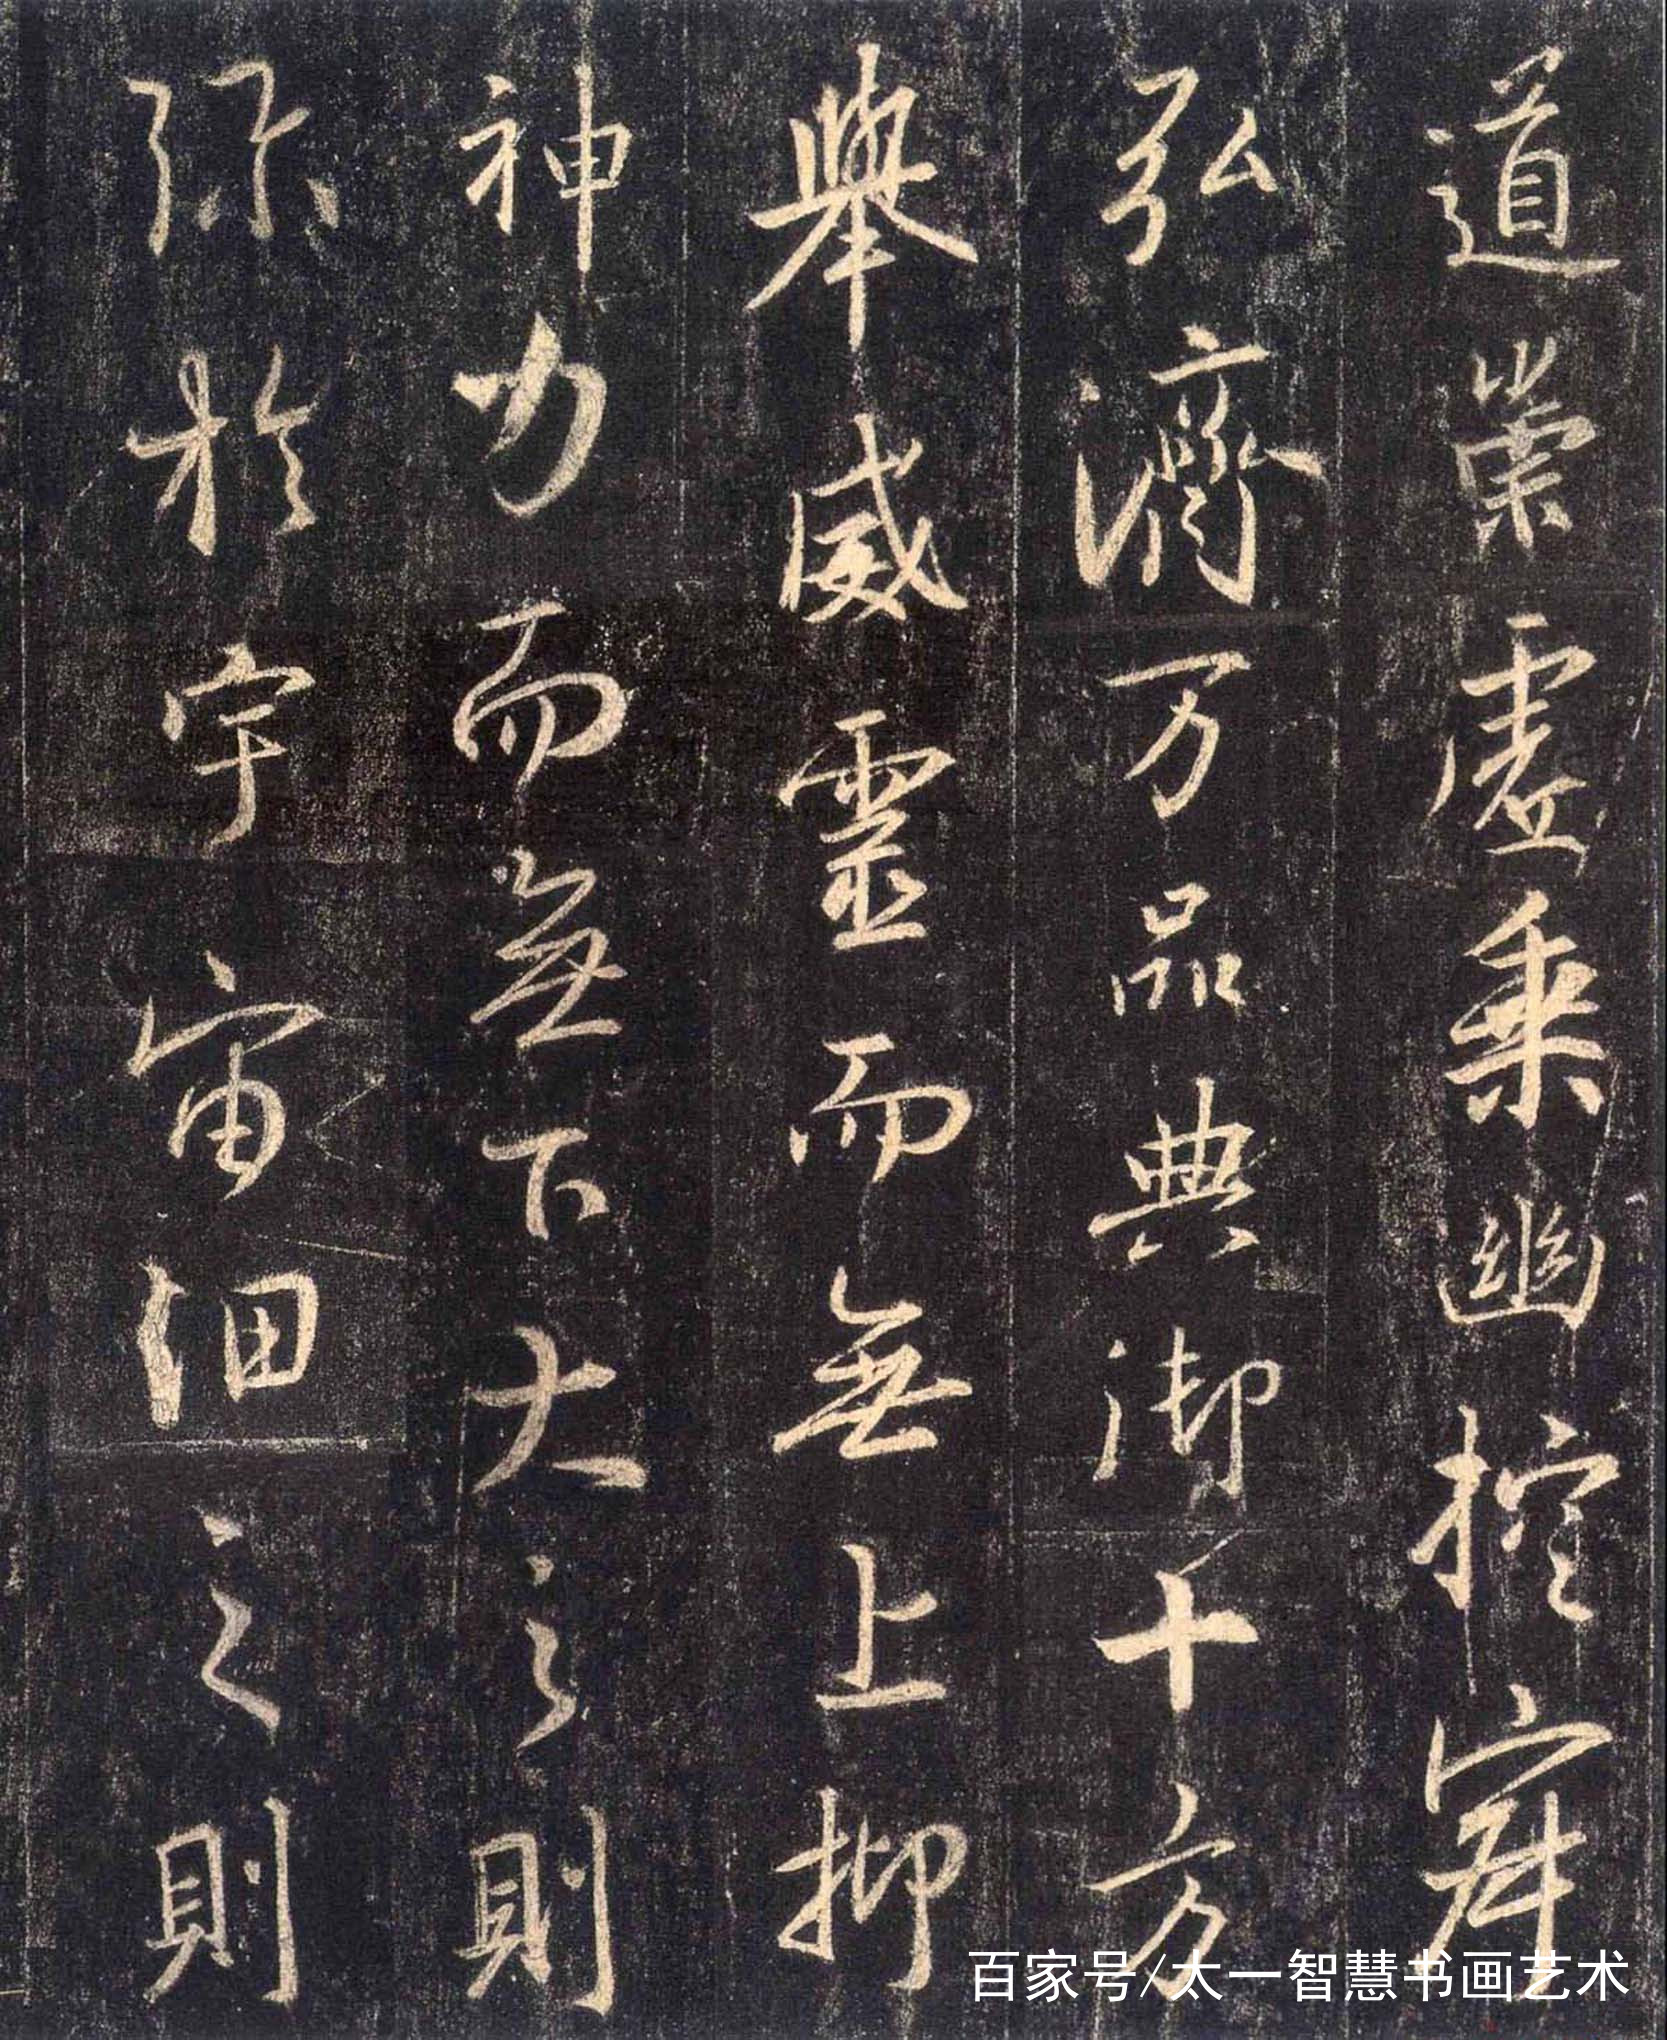 道崇虛乘幽控寂
弘濟万品典御十方
舉威靈而無上抑
神力而無下大之則
弥於宇宙細之則
百家号/太一智慧书画艺术